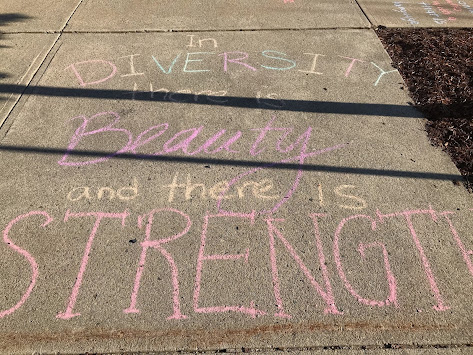 In
DIVERSITY
there is
Beauty
and there is
STRENGTH